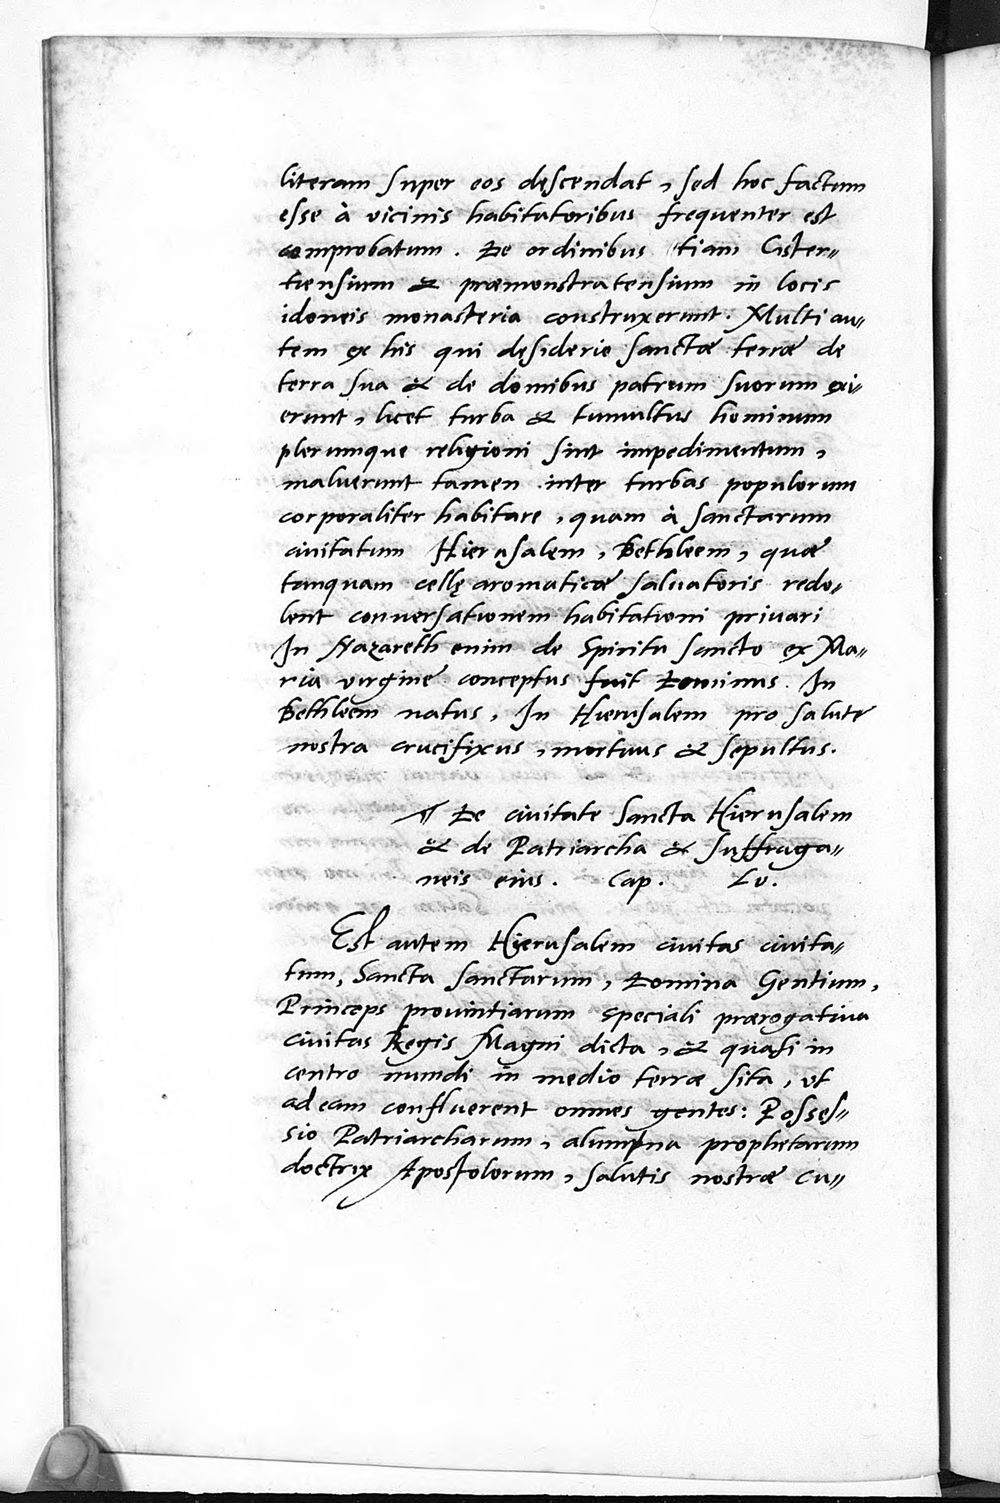 literam super eos descendat, sed hoc factum
esse à vicinis habitatoribus frequenter est
comprobatum. De ordinibus etiam Cister=
tiensium & præmonstratensium in locis
idoneis monasteria construxerunt. Multi au=
tem ex his qui desiderio sanctæ terræ de
terra sua & de domibus patrum suorum exi=
erunt, licet turba & tumultus hominum
plerumque religioni sint impedimentum,
maluerunt tamen inter turbas populorum
corporaliter habitare, quam à sanctarum
ciuitatum Hierusalem, Bethleem, quæ
tanquam cellę aromaticæ saluatoris redo=
lent conuersationem habitationi priuari
In Nazareth enim de Spiritu sancto ex Ma=
ria virgine conceptus fuit Dominus. In
Bethleem natus, In Hierusalem pro salute
nostra crucifixus, mortuus & sepultus.
¶ De ciuitate sancta Hierusalem
& de Patriarcha & suffraga=
neis eius. Cap. Lv.
Est autem Hierusalem ciuitas ciuita=
tum, Sancta sanctarum, Domina Gentium,
Princeps prouintiarum speciali prærogatiua
ciuitas Regis Magni dicta, & quasi in
centro mundi in medio terræ sita, vt
ad eam confluerent omnes gentes: Posses=
sio Patriarcharum, alumpna prophetarum
doctrix Apostolorum, salutis nostræ cu=